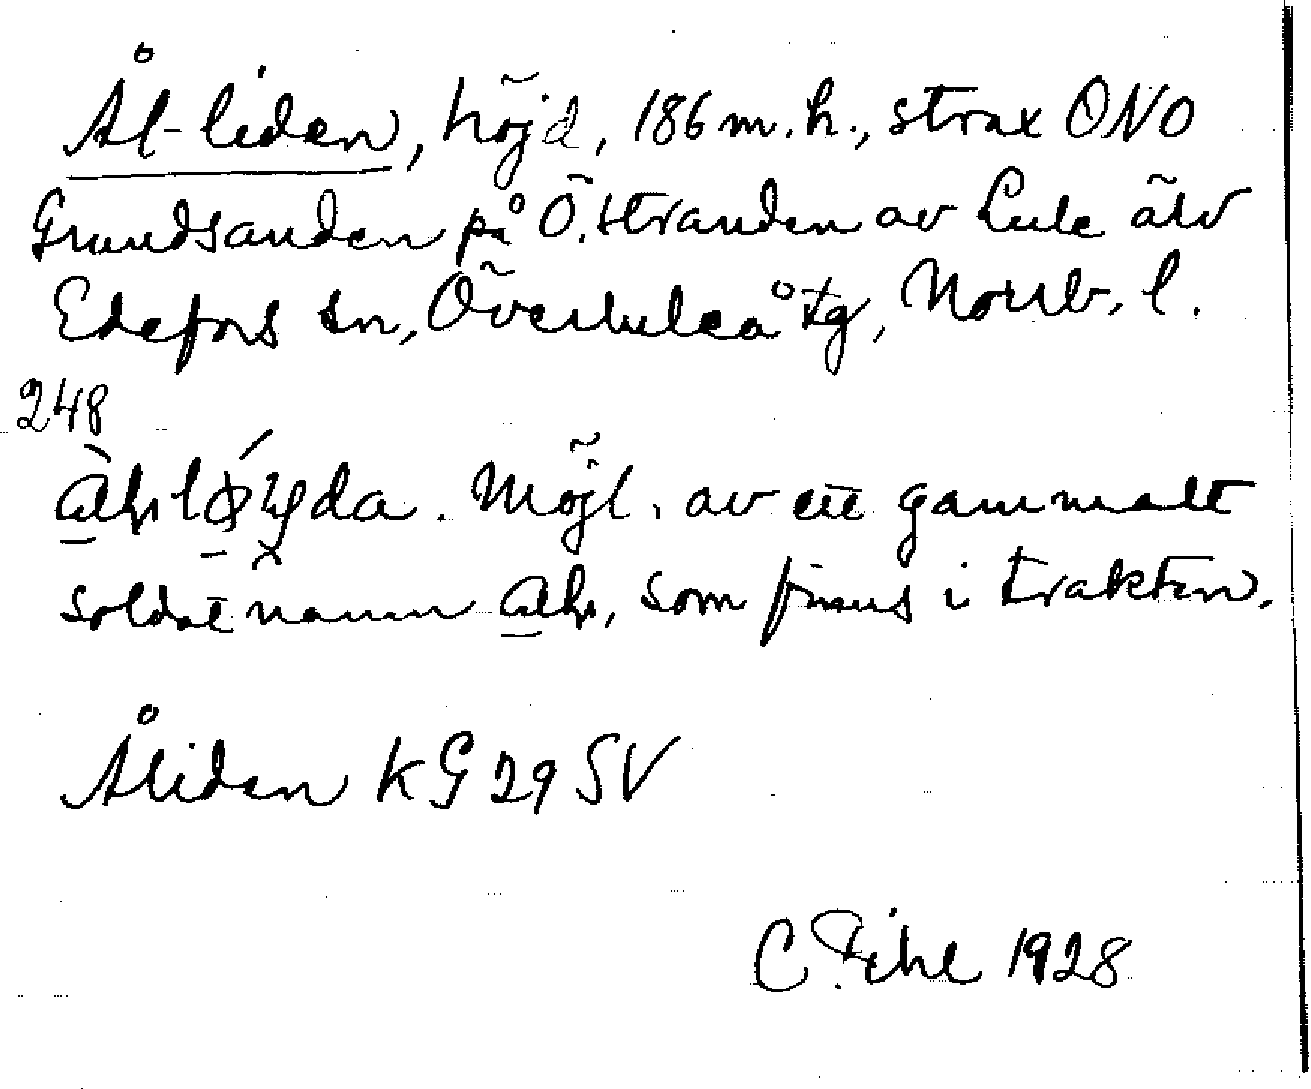 Ål-liden, höjd, 186 m.h., strax ONO
Grundsanden på Ö. stranden av Lule älv
Edefors sn, Överluleå tg, Norrb. l.
248
Möjl. av ett gammalt
soldatnamn som finns i trakten.
Åliden KG 29 SV
C. Pihl 1928